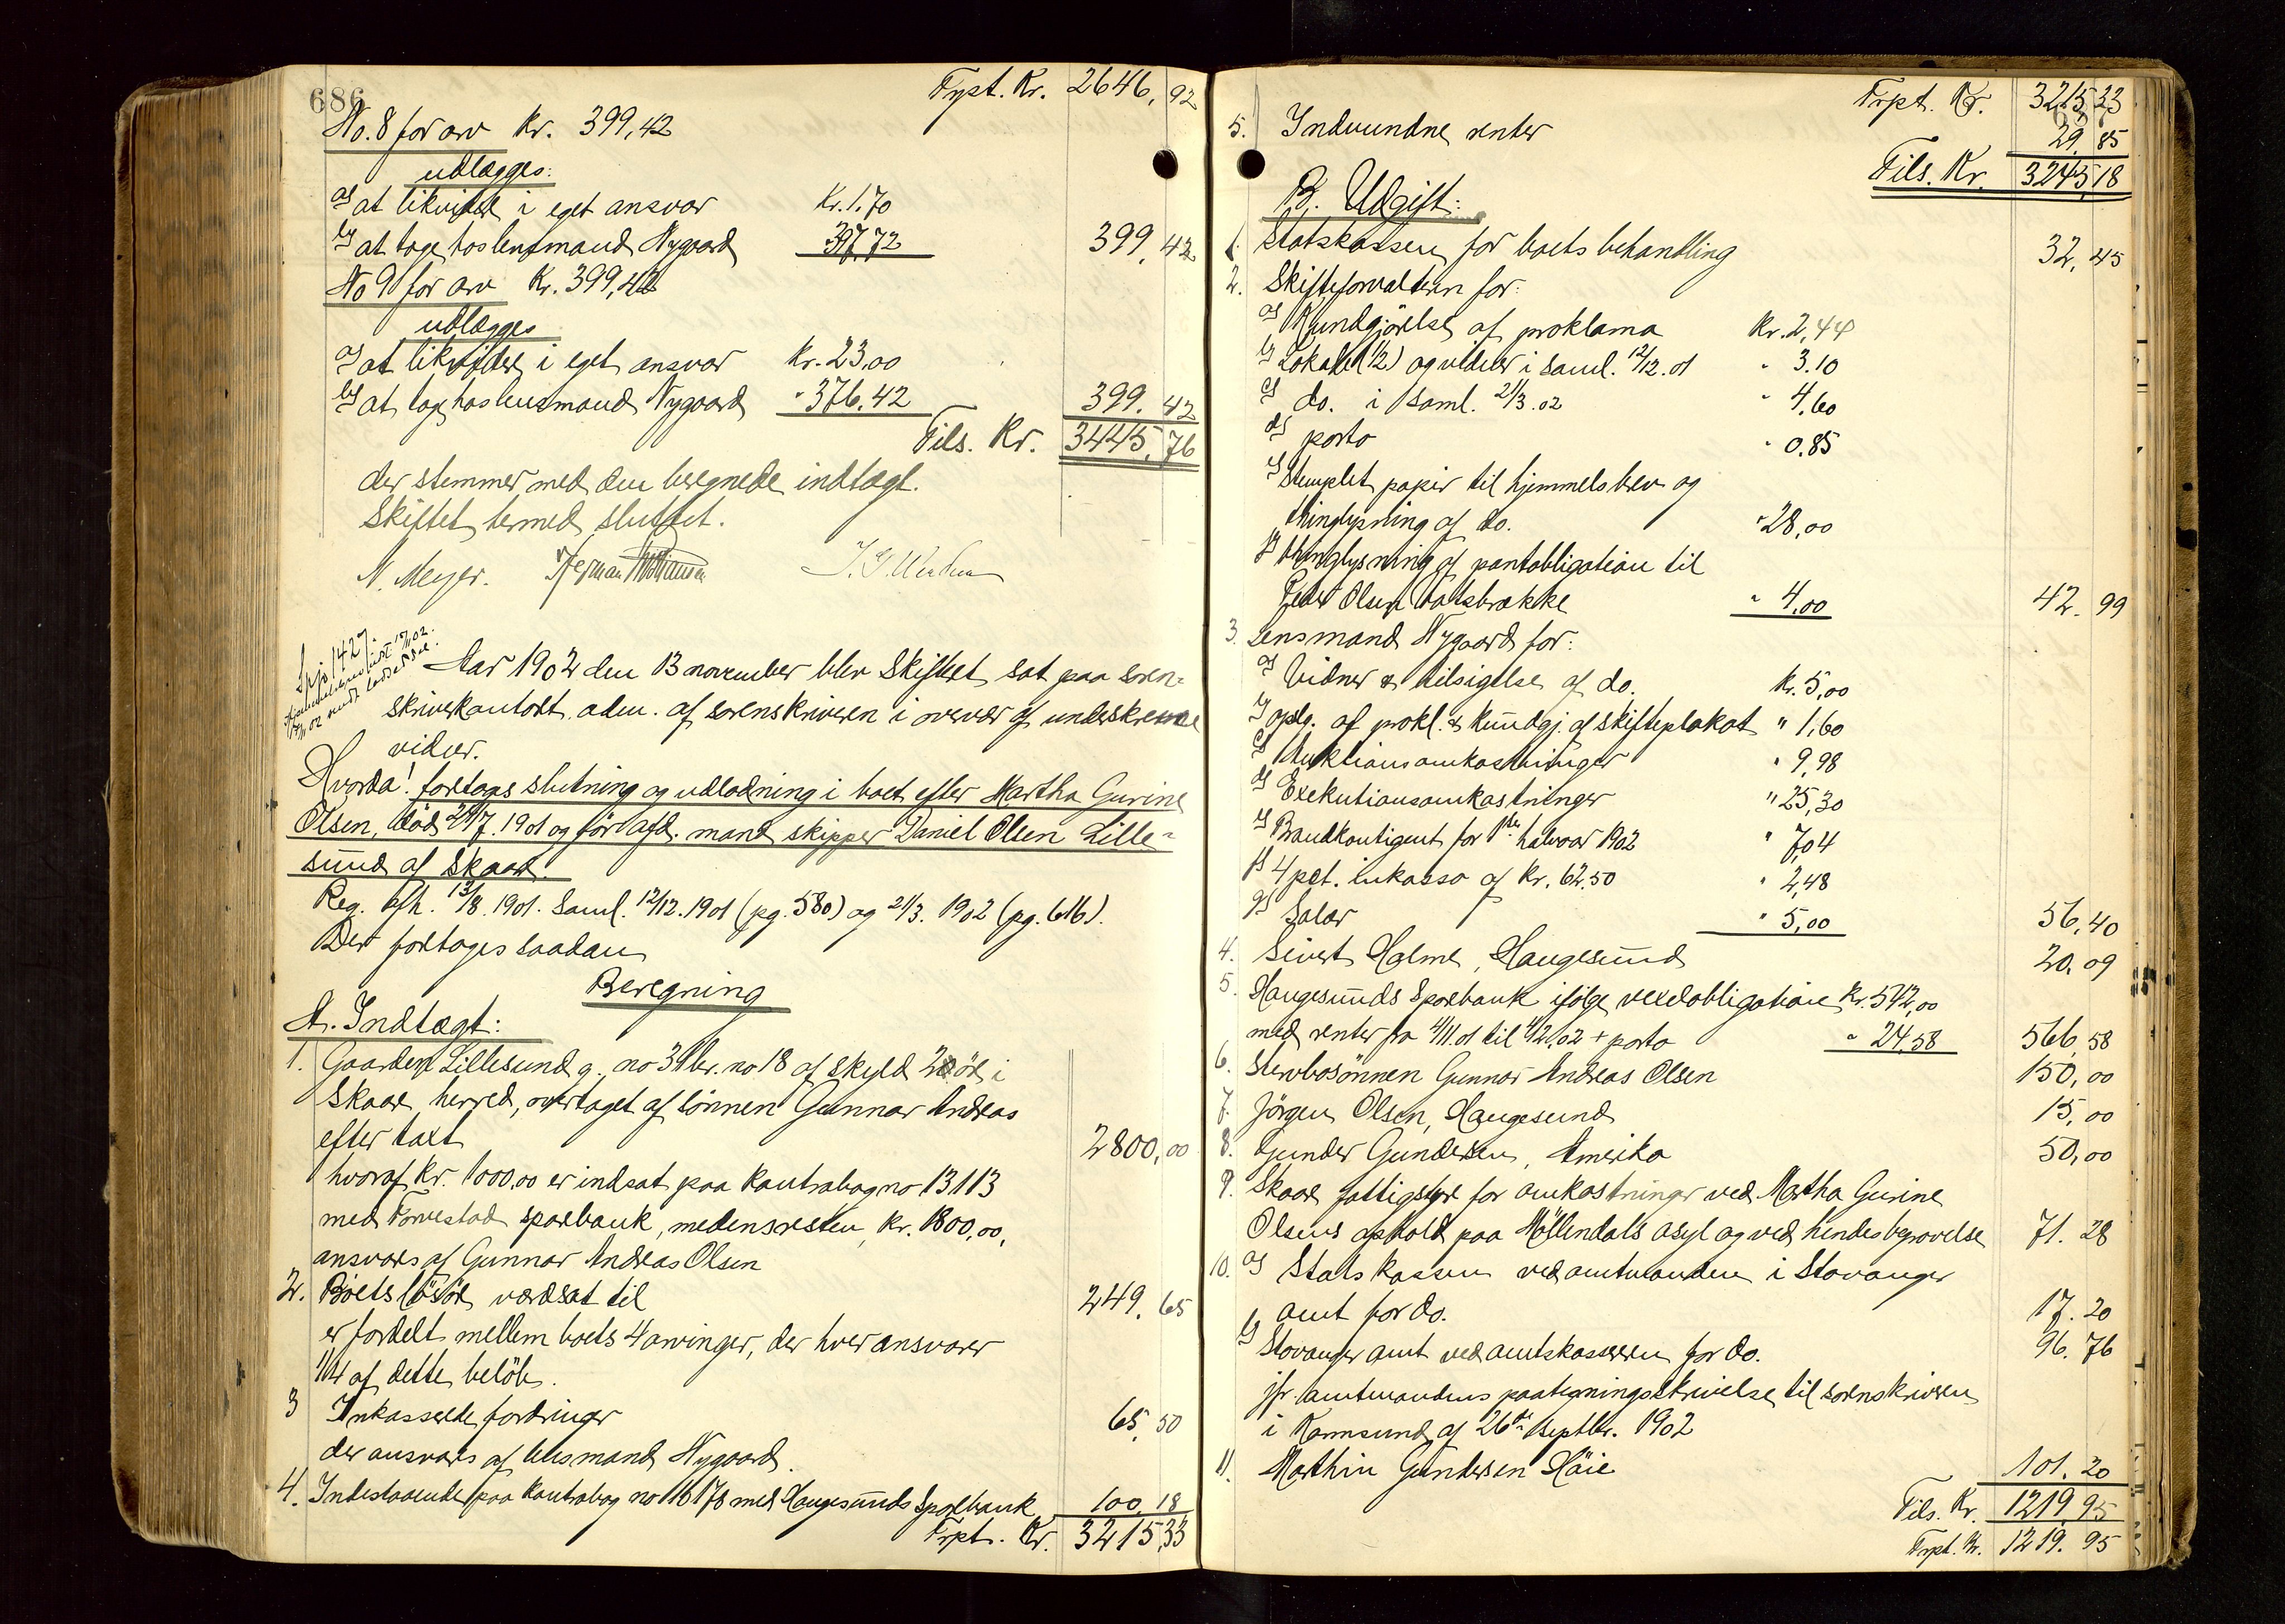 686
Trpt. Kr. 2646,92
No. 8 for arv Kr. 399,42
udlægges:
a) at likvidere i eget ansvar Kr. 1.70
b) at tage hos lensmand Nygaard 397,72 399,42
No 9 for arv Kr. 399,42
udlægges
a) at likvidere i eget ansvar Kr. 23,00
b) at tage hos lensmand Nygaard " 376.42 399.42
Tils. Kr. 3445,76
der stemmer med den beregnede indtægt.
Skiftet hermed sluttet.
N. Meyer. Herman
Aar 1902 den 13 november blev Skifteret sat paa soren-
skriverkontoret, adm. af sorenskriveren i overvær af underskrevne
vidner.
Hvorda! foretages slutning og udlodning i boet efter Martha Gurine
Olsen, død 24/7. 1901 og før afd. mand skipper Daniel Olsen Lille-
sund af Skaare.
Reg. afh. 13/8. 1901. Saml. 12/12. 1901 (pg. 580) og 21/3. 1902 (pg. 616).
Der foretages saadan
Beregning
A. Indtægt:
1. Gaarden Lillesund g. no 34 br. no 18 af skyld 20 øre i
Skaare herred, overtaget af sønnen Gunnar Andreas
efter taxt 2800,00
hvoraf Kr. 1000,00 er indsat paa Kontrabog no 13113
med Torvestad sparebank, medens resten, Kr. 1800,00,
ansvares af Gunnar Andreas Olsen
2. Boets løsøre værdsat til 249.65
er fordelt mellem boets 4 arvinger, der hver ansvarer
1/4 af dette beløb.
3 Inkasserede fordringer 65,50
der ansvares af lensmand Nygaard.
4. Indestaaende paa Kontrabog no 16178 med Haugesunds Sparebank 100.18
Trpt. Kr. 3215,33
Trpt. Kr. 3215,33
687
5. Indvundne renter 29,85
Tils. Kr. 3245,18
B. Udgift:
1. Statskassen for boets behandling 32,45
2. Skifteforvalteren for:
a) Kundgjørelse af proklama Kr. 2,44
b) Lokale (1/2) og vidner i saml. 12/12. 01 " 3.10
c) do. i saml. 21/3. 02 " 4,60
d) porto " 0.85
e) Stemplet papir til hjemmelsbrev og
thinglysning af do. " 28,00
f) thinglysning af pantobligation til
Peder Olsen Vatsbrække " 4,00 42.99
3. Lensmand Nygaard for:
a) Vidner & tilsigelse af do. Kr. 5,00
b) opslg. af prokl. & kundgj. af skifteplakat " 1,60
c) Auktionsomkostninger " 9,98
d) Exekutionsomkostninger " 25,30
e) Brandkontigent for 1ste halvaar 1902 " 7,04
f) 4 pct. inkasso af Kr. 62.50 " 2,48
g) Salær " 5,00 56,40
4. Sivert Holme, Haugesund 20,09
5. Haugesunds Sparebank ifølge vexelobligation Kr. 542,00
med renter fra 4/11. 01 til 1/2. 02 + porto " 24,58 566,58
6. Stervbosønnen Gunnar Andreas Olsen 150,00
7. Jørgen Olsen, Haugesund 15,00
8. Gunder Gundersen, Amerika 50,00
9. Skaare fattigstyre for omkostninger ved Martha Gurine
Olsens ophold paa Møllendals asyl og ved hendes begravelse 71.28
10. a) Statskassen ved amtmanden i Stavanger
amt for do. 17.20
b) Stavanger amt ved amtskassereren for do. 96.76
jfr. amtmandens paategningsskrivelse til sorenskriveren
i Karmsund af 26de septbr. 1902
11. Marthin Gundersen Høie 101.20
Tils. Kr. 1219.95
Trpt. Kr. 1219.95